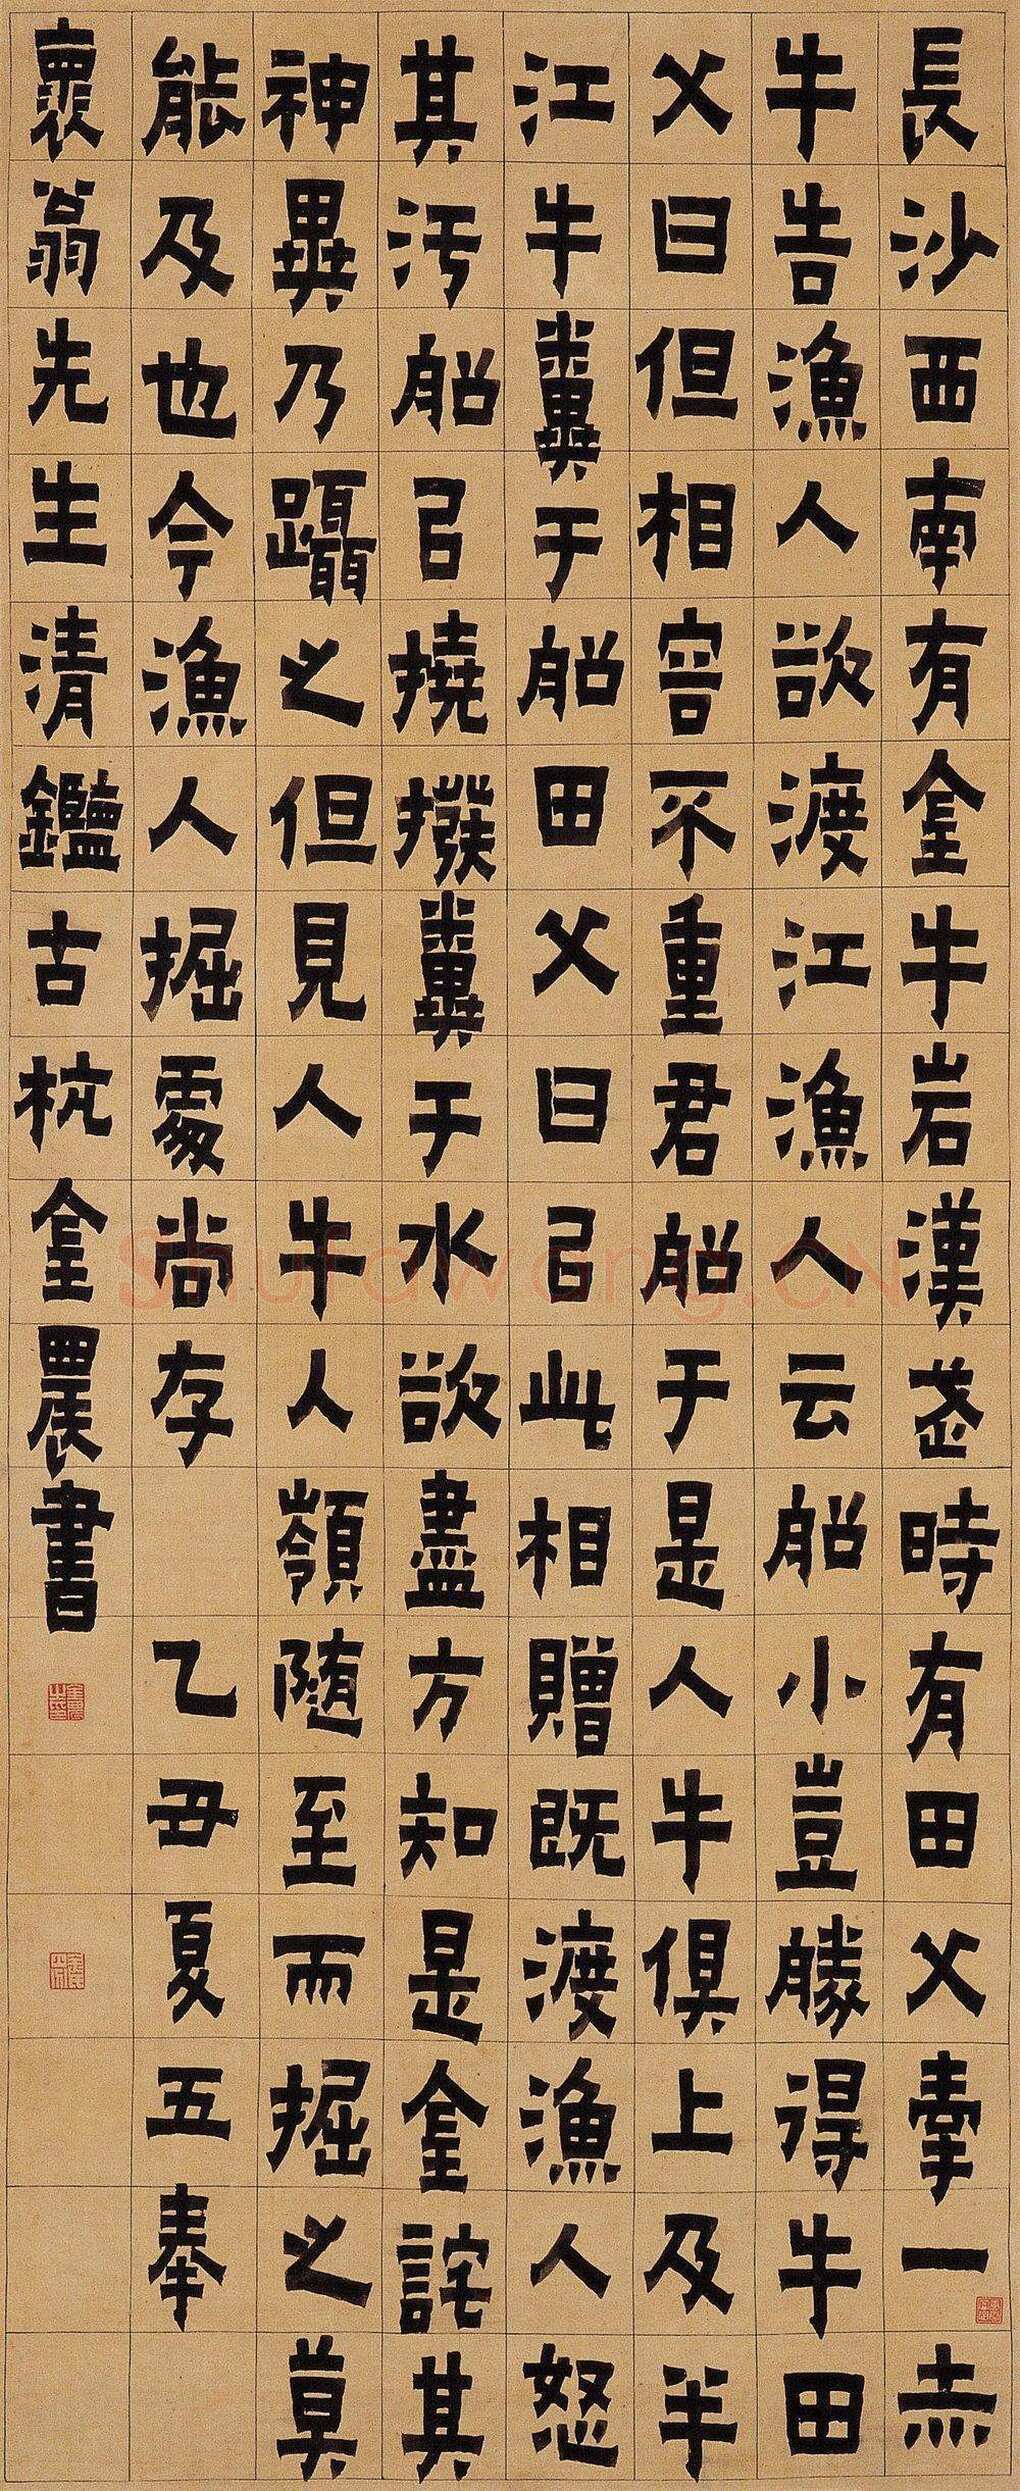 長沙西南有金牛岩漢武時有田父牽一赤
牛告漁人欲渡江漁人云船小豈勝得牛田
父曰但相容不重君船于是人牛俱上及半
江牛糞于船田父曰㠯此相贈既渡漁人怒
其汚船㠯撓撥糞于水欲盡方知是金詫其
神異乃躡之但見人牛人嶺隨至而掘之莫
能及也今漁人掘處尚存 乙丑夏五奉
裹翁先生清鑑古杭金農書
Shufawang.CN